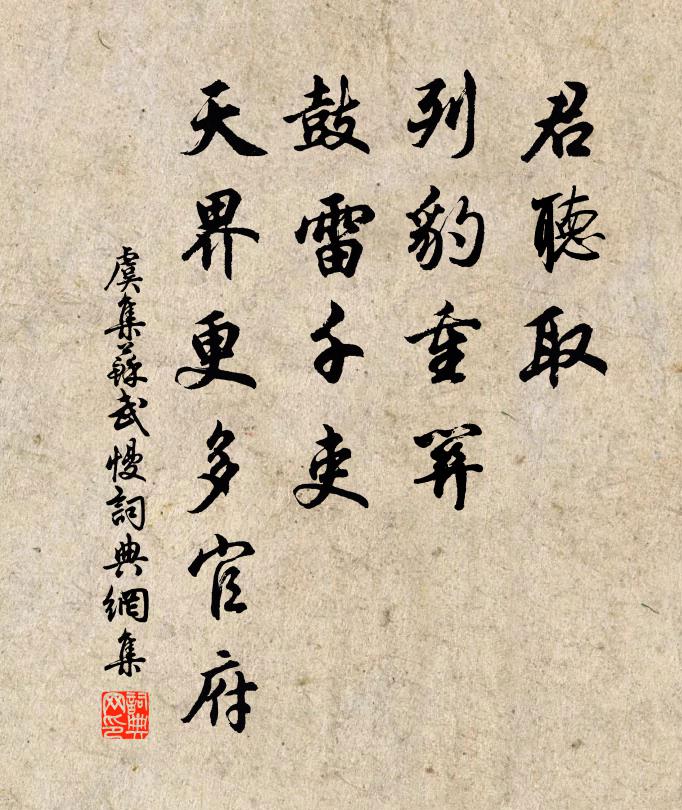 君聽取
列豹重關
鼓雷千吏
天界更多官府
虞集蘇武慢詞典網集
詞典网印